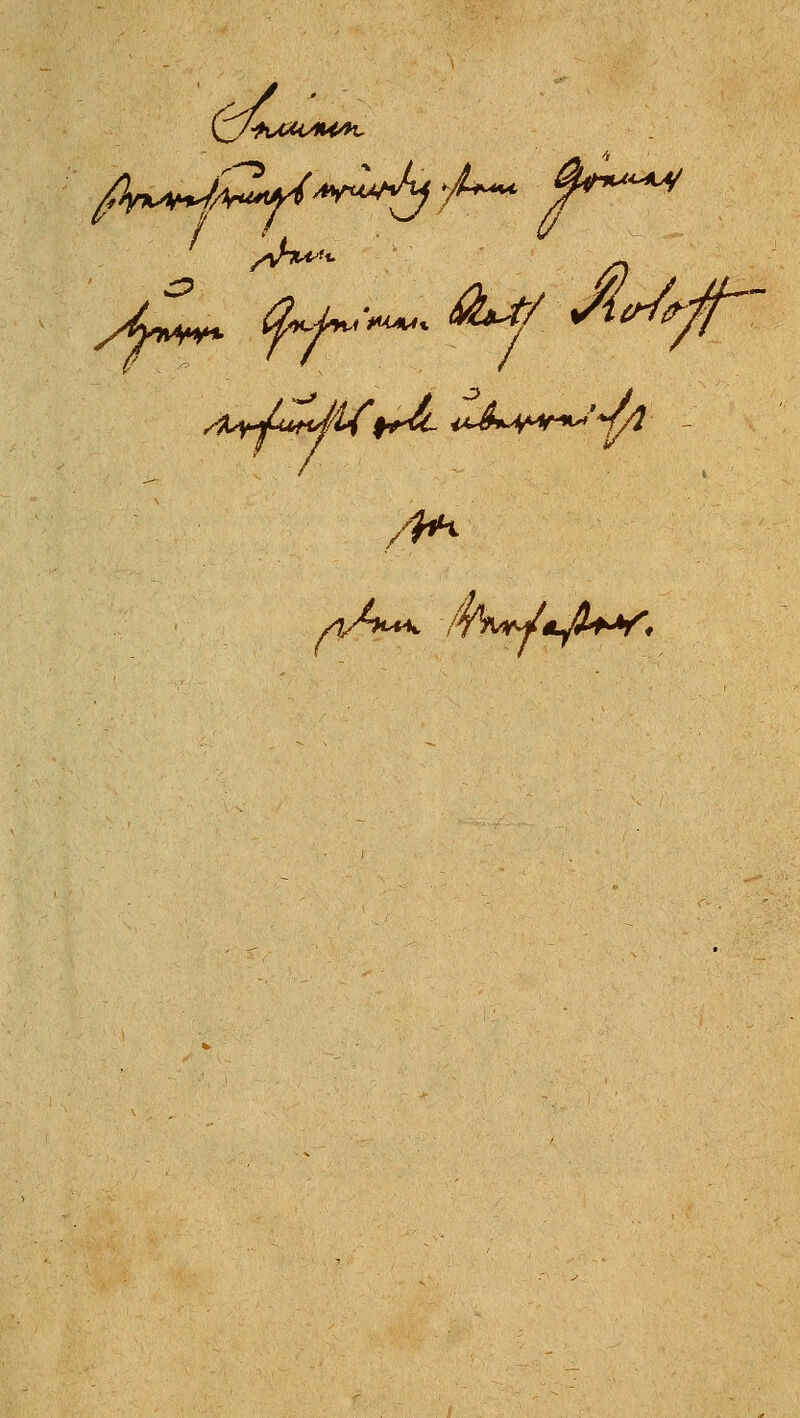 Seinem
verehrungswürdigstem Gönner
dem
Herrn Geheimen Rath Roloff
erfurchtsvoll überreicht
von
dem Verfasser.